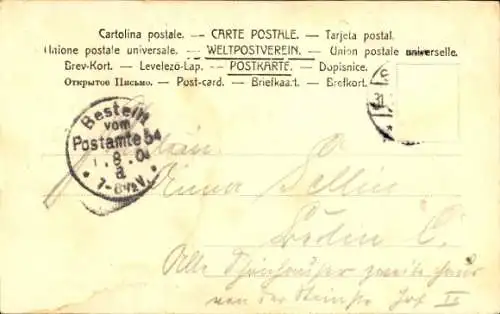 Cartolina postale. — CARTE POSTALE. — Tarjeta postal.
Unione postale universale. — WELTPOSTVEREIN. — Union postale universelle.
Brev-Kort. — Levelező-Lap. — POSTKARTE. — Dopisnice.
Открытое Письмо. — Post-card. — Briefkaart. — Brefkort.
31
Bestellt
vom
Postamte 54
1.8.0
a
7-8½V.
Anna Sellin
Berlin C.
Alte Schönhauser
Hof II